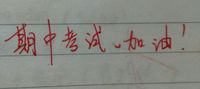 期中考试、加油!